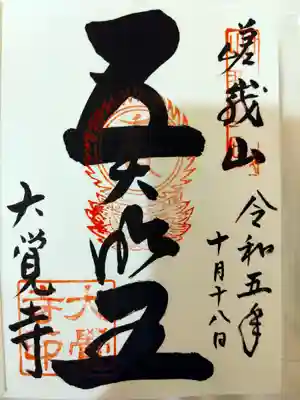 嵯峨山
令和五年
十月十八日
五大明王
大覚寺
大覺
寺印